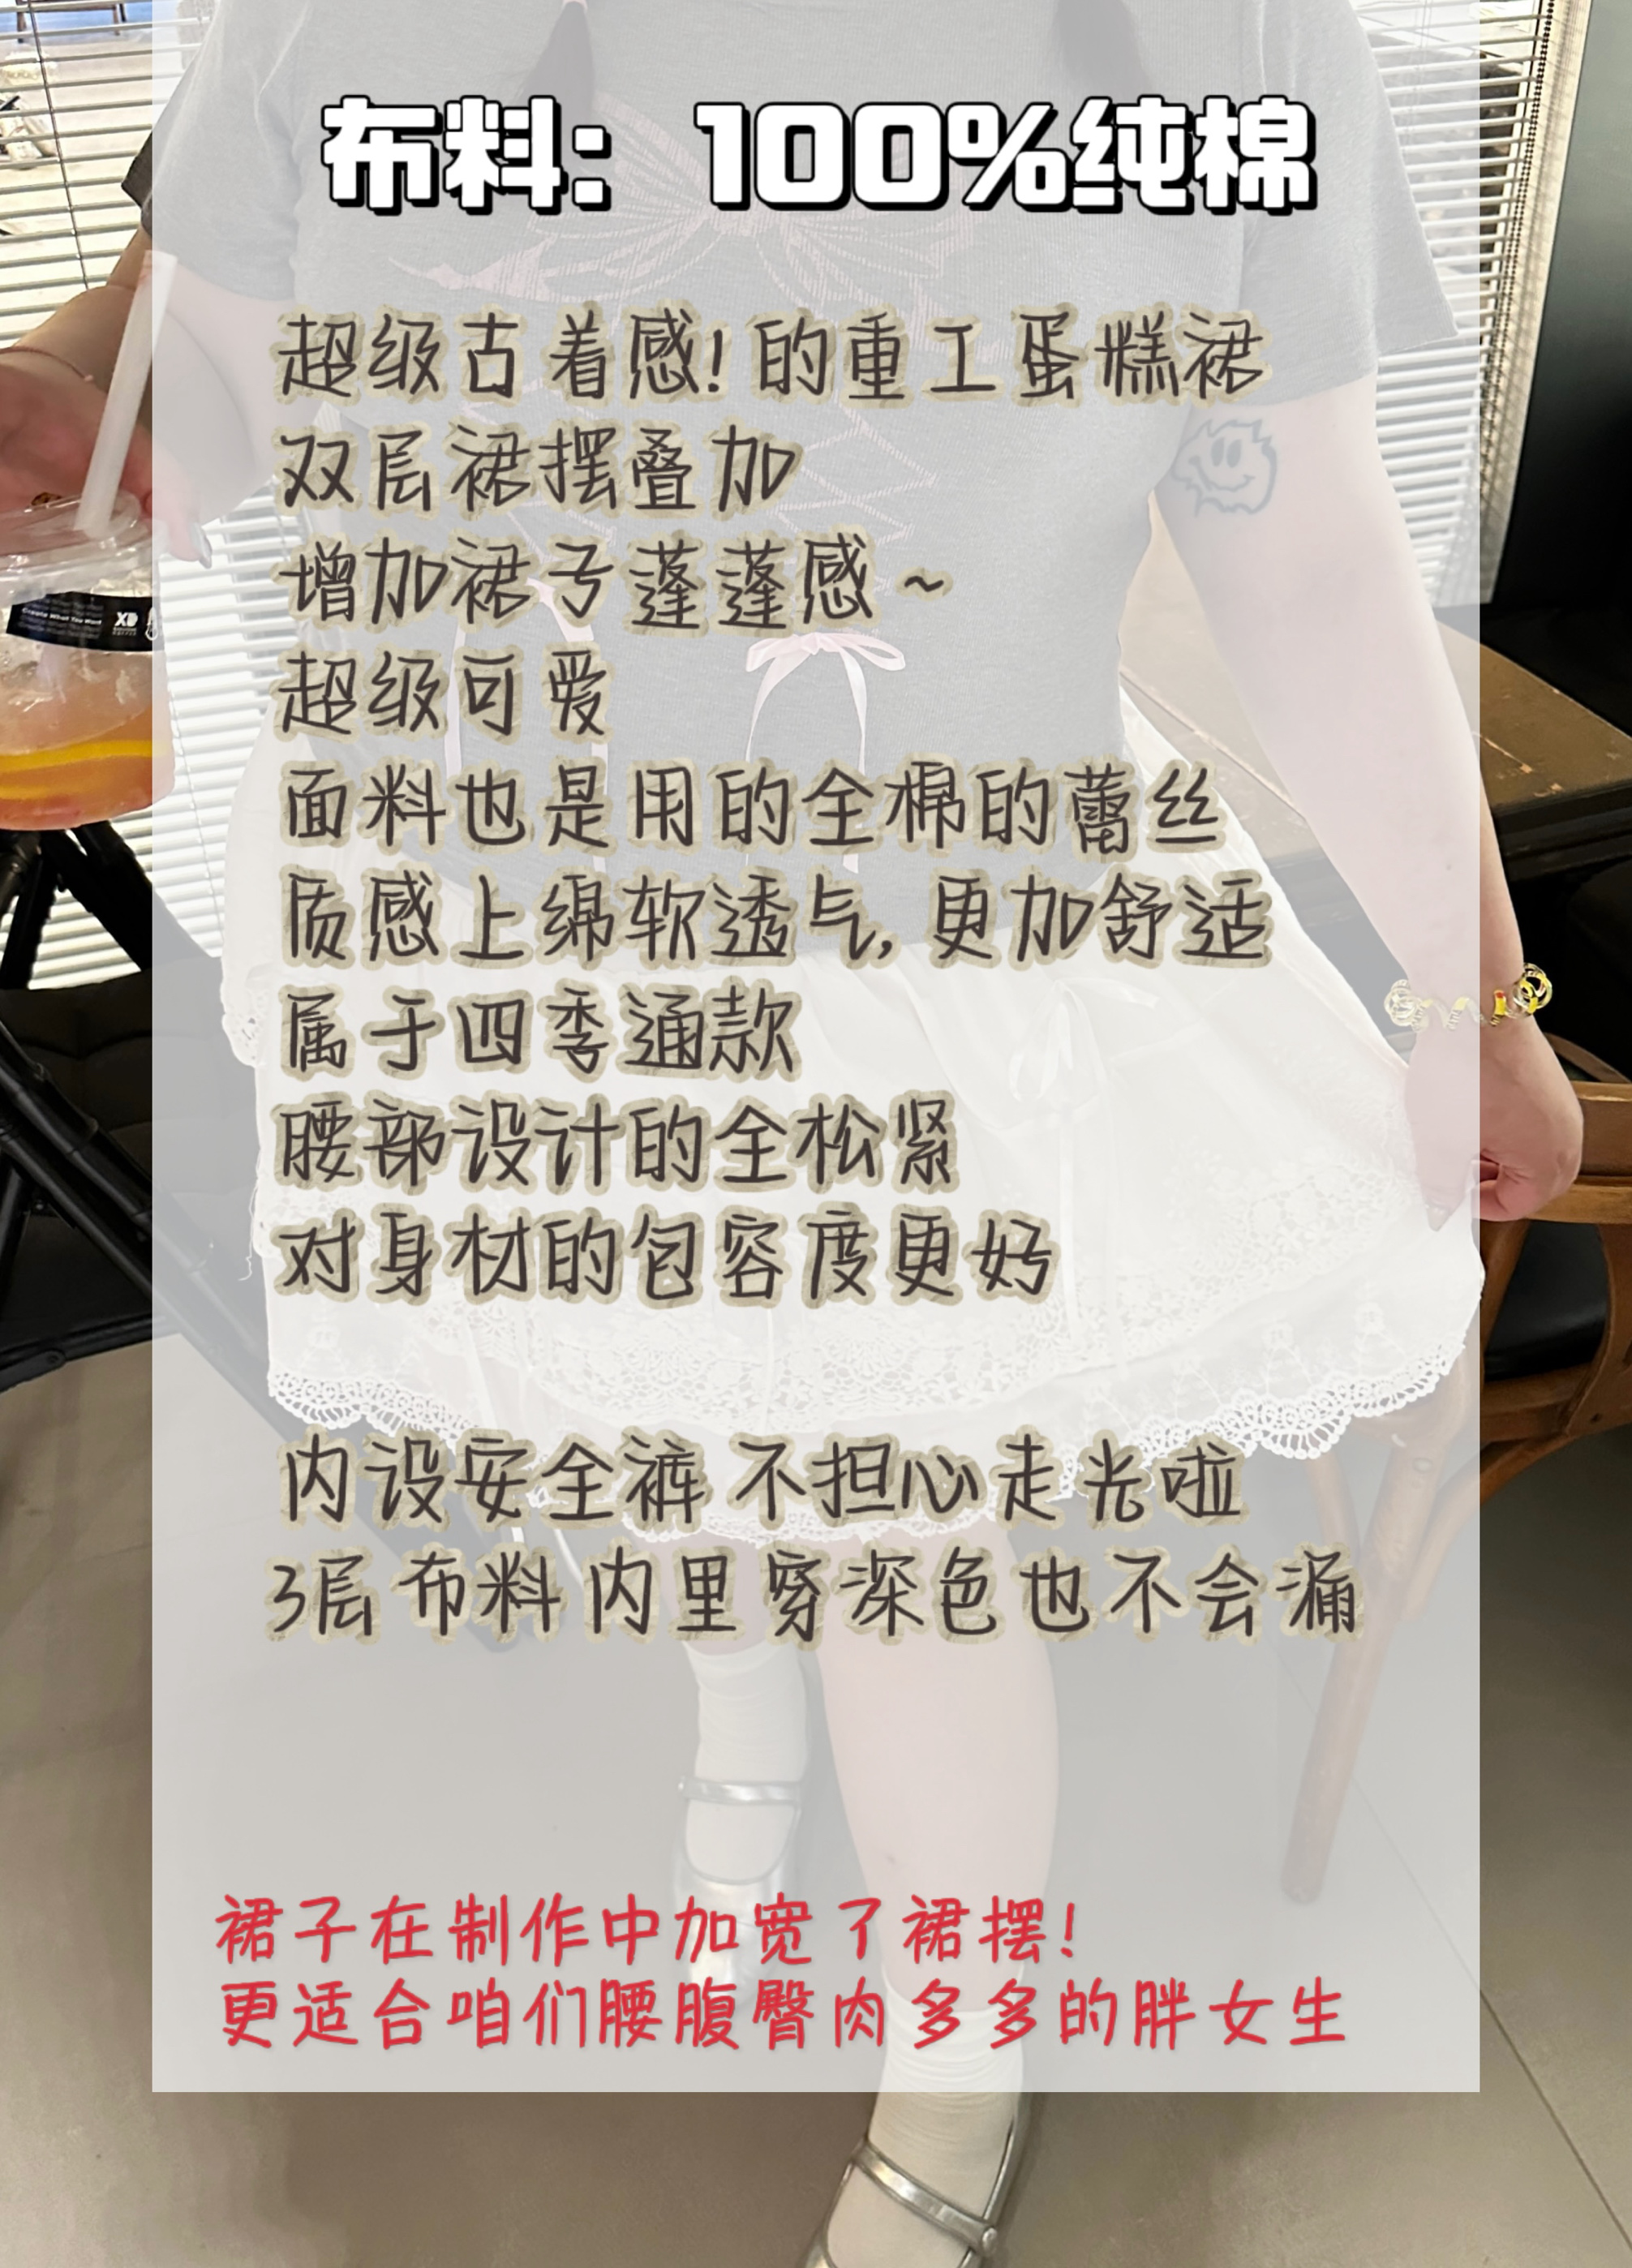 布料：100%纯棉
超级古着感!的重工蛋糕裙
双层裙摆叠加
增加裙子蓬蓬感~
超级可爱
面料也是用的全棉的蕾丝
质感上绵软透气,更加舒适
属于四季通款
腰部设计的全松紧
对身材的包容度更好
内设安全裤 不担心走光啦
3层布料内里穿深色也不会漏
裙子在制作中加宽了裙摆!
更适合咱们腰腹臀肉多多的胖女生
Create What You Want
XD